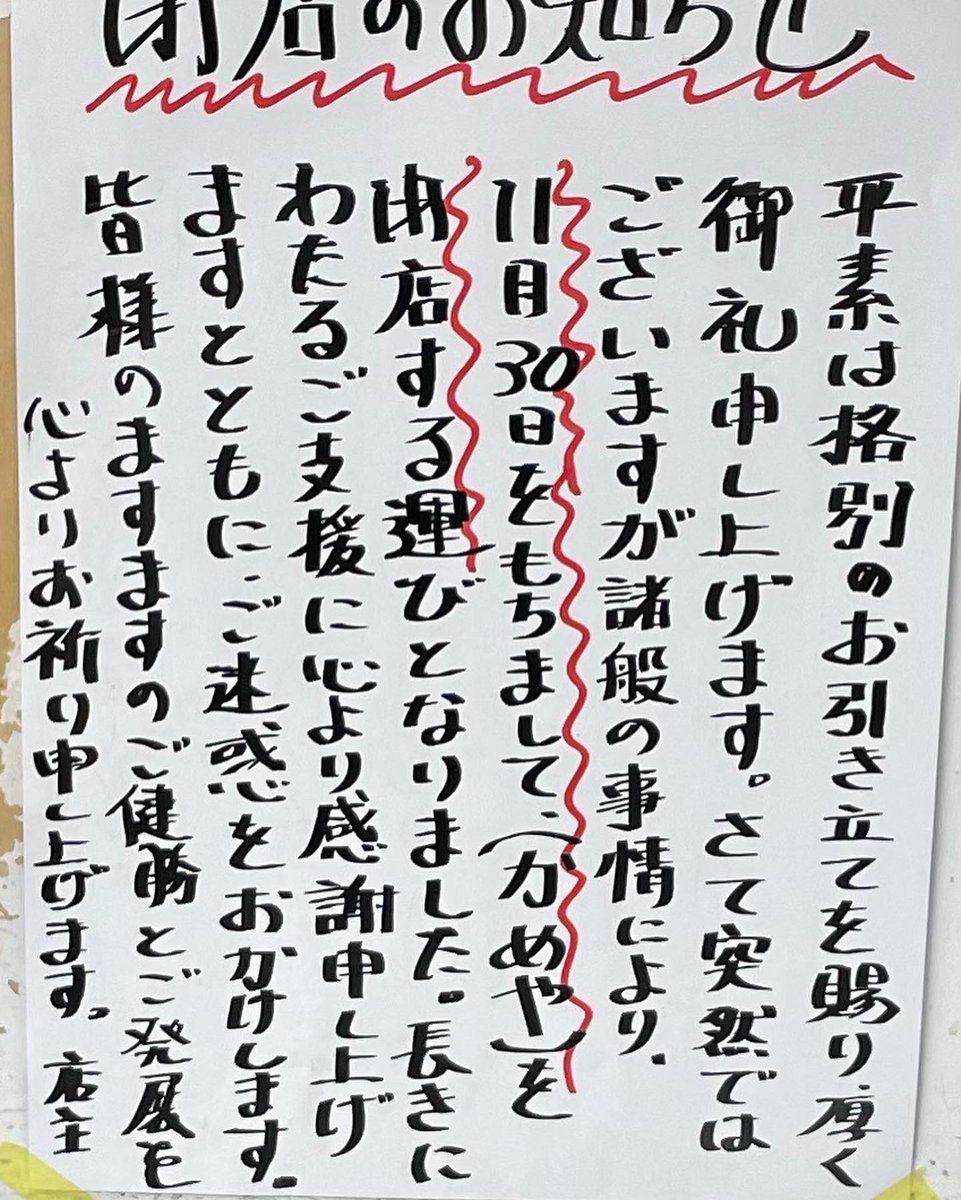 閉店のお知らせ
平素は格別のお引き立てを賜り厚く
御礼申し上げます。さて突然では
ございますが諸般の事情により、
11月30日をもちまして、(かめや)を
閉店する運びとなりました。長きに
わたるご支援に心より感謝申し上げ
ますとともにご迷惑をおかけします。
皆様のますますのご健勝とご発展を
心よりお祈り申し上げます。 店主